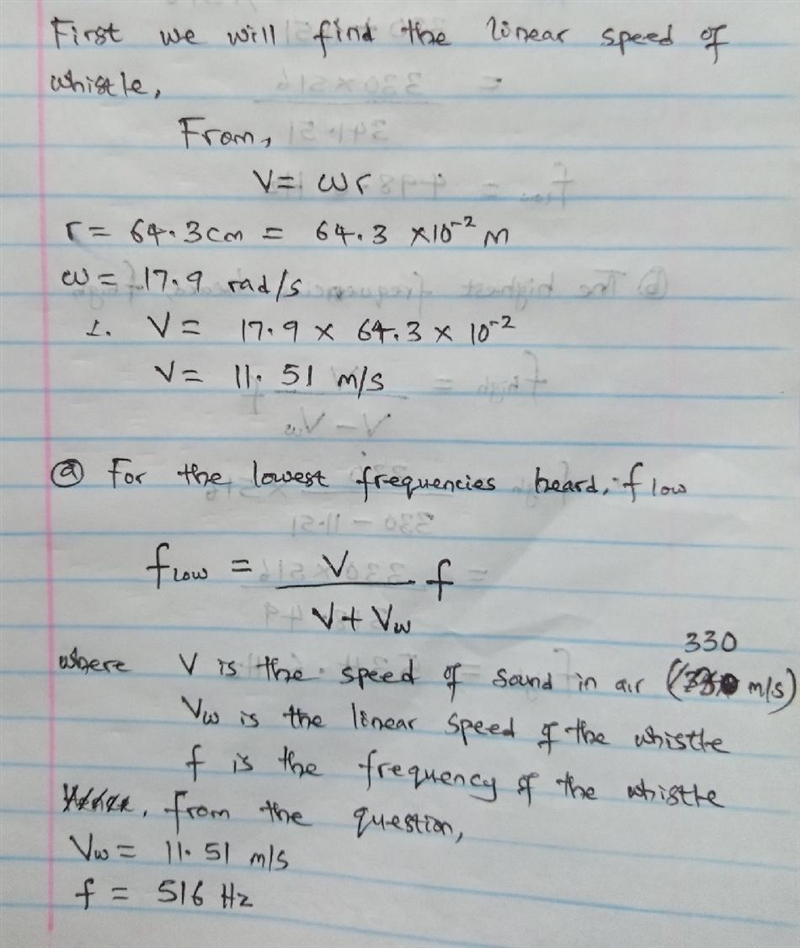 First we will find the linear speed of
whistle,
From,
V = ωr
r = 64.3cm = 64.3 ×10⁻² m
ω = 17.9 rad/s
∴ V = 17.9 × 64.3 × 10⁻²
V = 11.51 m/s
ⓐ For the lowest frequencies heard, f low
f Low = V / (V + Vw) f
where V is the speed of sound in air (330 m/s)
Vw is the linear speed of the whistle
f is the frequency of the whistle
, from the question,
Vw = 11.51 m/s
f = 516 Hz